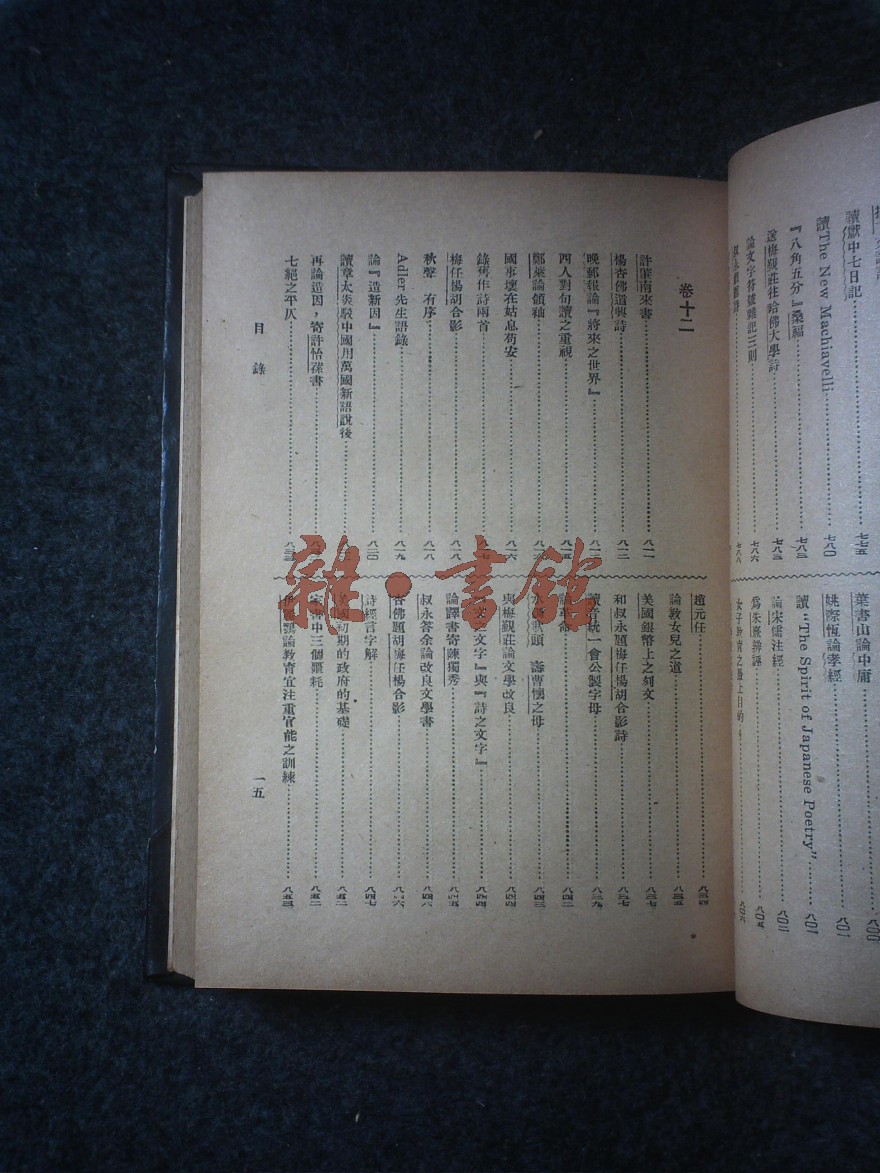 讀獻中七日記 七七五
讀The New Machiavelli 七八〇
『八角五分』桑福 七八三
送梅覲莊往哈佛大學詩 七八三
論文字符號雜記三則 七八六
葉書山論中庸 八〇〇
姚際恆論孝經 八〇一
讀“The Spirit of Japanese Poetry” 八〇一
論宋儒注經 八〇二
爲朱熹辨誣 八〇五
女子教育之最上目的
卷十二
許肇南來書 八一一
楊杏佛遣興詩 八一二
晚郵報論『將來之世界』 八一二
四人對句讀之重視 八一五
鄭萊論領袖
國事壞在姑息苟安 八一六
錄舊作詩兩首
梅任楊胡合影 八一八
秋聲 有序 八一八
Adler先生語錄 八一九
論『造新因』 八二〇
讀章太炎駁中國用萬國新語說後
再論造因,寄許怡蓀書
七絕之平仄
趙元任 八三四
論教女兒之道 八三五
美國銀幣上之刻文 八三七
和叔永題梅任楊胡合影詩 八三七
讀音統一會公製字母 八三九
論革命 八四二
水調歌頭 壽曹懷之母 八四三
與梅覲莊論文學改良 八四四
『文之文字』與『詩之文字』 八四四
論譯書寄陳獨秀 八四五
叔永答余論改良文學書 八四六
杏佛題胡梅任楊合影 八四六
詩經言字解 八四七
美國初期的政府的基礎 八五一
家書中三個噩耗 八五二
伊麗鶚論教育宜注重官能之訓練 八五三
目錄
一五
雜·書館